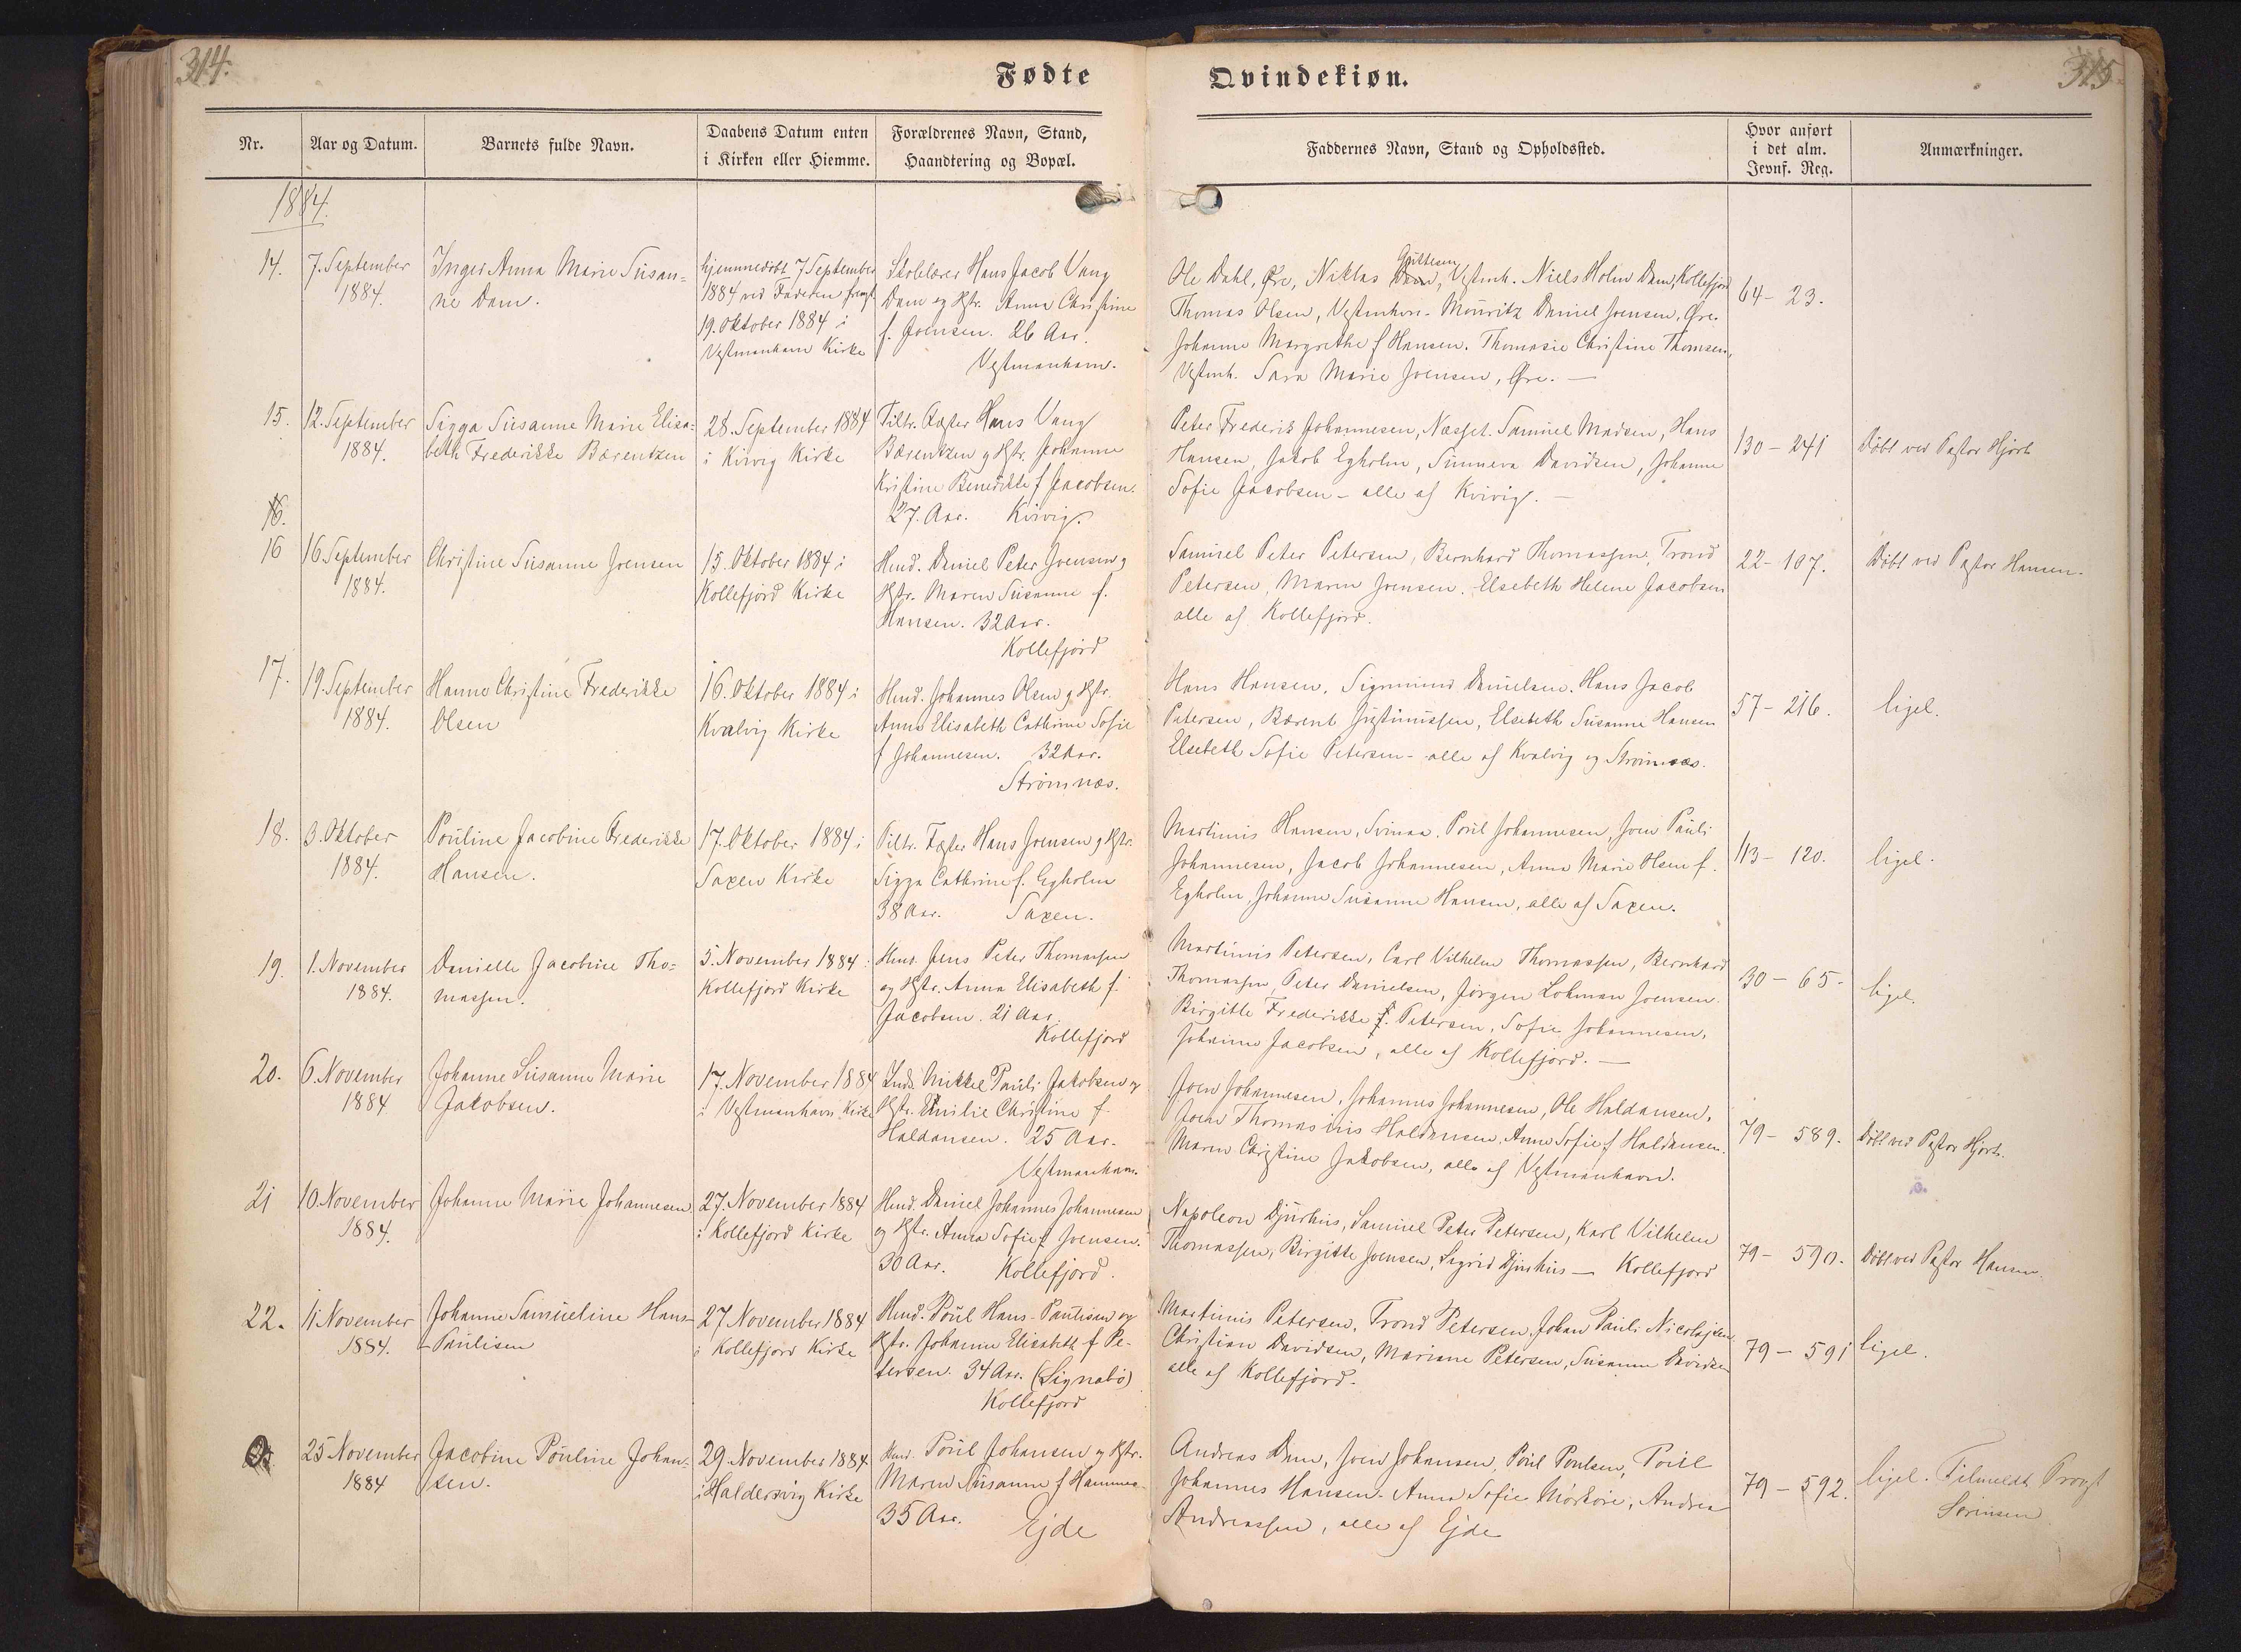 314.
Fødte
Nr.
Aar og Datum.
Barnets fulde Navn.
Daabens Datum enten
i Kirken eller Hiemme.
Forældrenes Navn, Stand,
Haandtering og Bopæl.
1884.
14.
7. September
1884.
Inger Anna Marie Susan-
ne Dam.
hjemmedøbt 7 September
1884 ved Faderen fremst
19. Oktober 1884 i
Vestmanhavn Kirke
Skolelærer Hans Jacob Vang
Dam og Hstr. Anna Christine
f. Joensen. 26 Aar.
Vestmanhavn.
15.
12. September
1884.
Sigga Susanne Marie Elisa-
beth Frederikke Bærentzen
28. September 1884
i Kvivig Kirke
Tiltr. Fæster Hans Vang
Bærentzen og Hstr. Johanne
Kristine Benedikte f Jacobsen.
27. Aar. Kvivig.
16.
16
16. September
1884.
Christine Susanne Joensen
15. Oktober 1884 i
Kollefjord Kirke
Hmd. Daniel Peter Joensen og
Hstr. Maren Susanne f.
Hansen. 32 Aar.
Kollefjord
17.
19. September
1884.
Hanne Christine Frederikke
Olsen
16. Oktober 1884 i
Kvalvig Kirke
Hmd. Johannes Olsen og Hstr.
Anna Elisabeth Cathrine Sofie
f Johannesen. 32 Aar.
Strømnæs.
18.
3. Oktober
1884.
Pouline Jacobine Frederikke
Hansen.
17. Oktober 1884 i
Saxen Kirke
Tiltr. Fæster Hans Joensen og Hstr.
Sigga Cathrine f. Egholm
38 Aar. Saxen.
19.
1. November
1884.
Danielle Jacobine Tho-
massen.
5. November 1884 i
Kollefjord Kirke
Hmd. Jens Peter Thomassen
og Hstr. Anna Elisabeth f.
Jacobsen. 21 Aar.
Kollefjord
20.
6. November
1884
Johanne Susanne Marie
Jakobsen.
17. November 1884
i Vestmanhavn Kirke
Inds. Mikkel Pauli Jakobsen og
Hstr. Emilie Christine f.
Haldansen. 25 Aar.
Vestmanhavn.
21
10. November
1884.
Johanne Marie Johannesen
27. November 1884
i Kollefjord Kirke
Hmd. Daniel Johannes Johannesen
og Hstr. Anna Sofie f Joensen.
30 Aar. Kollefjord.
22.
11 November
1884.
Johanne Samueline Hans-
-Paulisen
27 November 1884
i Kollefjord Kirke
Hmd. Poul Hans-Paulisen og
Hstr. Johanne Elisabeth f Pe-
tersen. 34 Aar. (Signabø)
Kollefjord
25 November
1884
Jacobine Pouline Johan-
sen.
29. November 1884
i Haldersvig Kirke
Hmd. Poul Johansen og Hstr.
Maren Susanne f Hammer
35 Aar. Ejde
Qvindekiøn.
315.
Faddernes Navn, Stand og Opholdssted.
Hvor anført
i det alm.
Jevnf. Reg.
Anmærkninger.
Ole Dahl, Øre, Niklas Dam, Vestmh. Niels Holm Dam, Kollefjord
Thomas Olsen, Vestmanhavn. Mouritz Daniel Joensen, Øre.
Johanne Margrethe f Hansen. Thomasie Christine Thomsen,
Vestmh. Sara Marie Joensen, Øre. —
64- 23.
Peter Frederik Johannesen, Næsset. Samuel Madsen, Hans
Hansen, Jakob Egholm, Sunneva Davidsen, Johanne
Sofie Jacobsen - alle af Kvivig. —
130 - 241
Døbt ved Pastor Hjort
Samuel Peter Petersen, Bernhard Thomassen, Trond
Petersen, Maren Joensen. Elsebeth Helene Jacobsen
alle af Kollefjord.
22- 107.
Døbt ved Pastor Hansen.
Hans Hansen. Sigmund Danielsen. Hans Jacob
Petersen, Bærent Justinussen, Elsebeth Susanne Hansen
Elsebeth Sofie Petersen - alle af Kvalvig og Strømnæs.
57- 216.
ligel.
Martinus Hansen, Svinaa. Poul Johannesen, Joen Pauli
Johannesen, Jacob Johannesen, Anna Marie Olsen f.
Egholm, Johanne Susanne Hansen, alle af Saxen.
113- 120.
ligel.
Martinus Petersen, Carl Vilhelm Thomassen, Bernhard
Thomassen, Peter Danielsen, Jørgen Lohman Joensen.
Birgitte Frederikke f. Petersen, Sofie Johannesen,
Johanne Jacobsen, alle af Kollefjord. —
30- 65.
ligel.
Joen Johannesen, Johannes Johannesen, Ole Haldansen,
Joen Thomasinis Haldansen. Anna Sofie f Haldansen.
Maren Christine Jakobsen, alle af Vestmanhavn.
79- 589.
Døbt ved Pastor Hjort.
Napoleon Djurhus, Samuel Peter Petersen, Karl Vilhelm
Thomassen, Birgitte Joensen, Sigrid Djurhus — Kollefjord
79- 590.
Døbt ved Pastor Hansen.
Martinus Petersen, Trond Petersen, Johan Pauli Nicolajsen
Christian Davidsen, Mariane Petersen, Susanne Davidsen
alle af Kollefjord.
79- 591
ligel.
Andreas Dam, Joen Johansen, Poul Poulsen, Poul
Johannes Hansen. Anna Sofie Mørkøre, Andrea
Andreassen, alle af Ejde
79 - 592.
ligel. Tilmeldt Provst
Sørensen